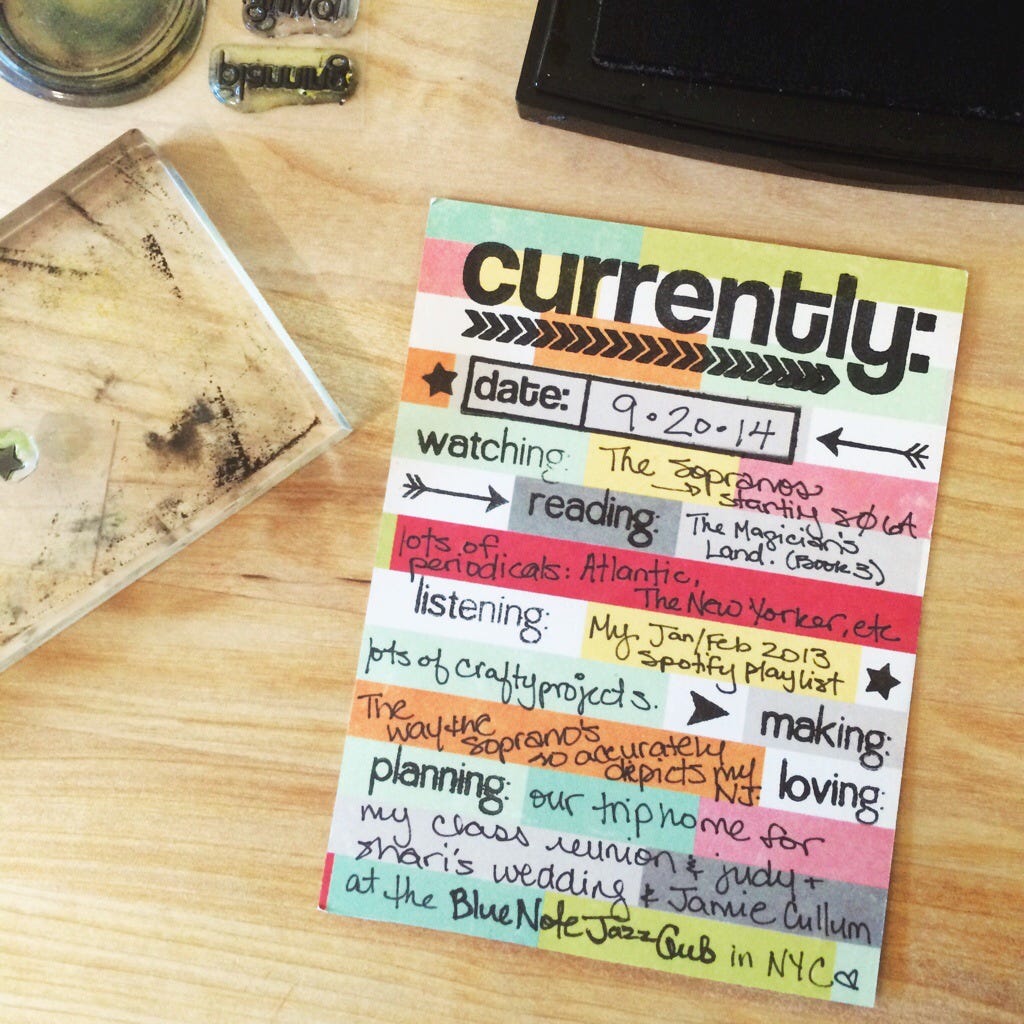 loving
planning
currently:
date: 9.20.14
watching: The Sopranos
→ starting SØ6A
reading: The Magician's
Land. (Book 3)
lots of
periodicals: Atlantic,
The New Yorker, etc
listening: My Jan/Feb 2013
Spotify playlist
lots of crafty projects.
making:
The
way the
Soprano's
so accurately
depicts my
NJ.
loving:
planning: our trip home for
my class reunion & judy +
shari's wedding & Jamie Cullum
at the Blue Note Jazz Club in NYC